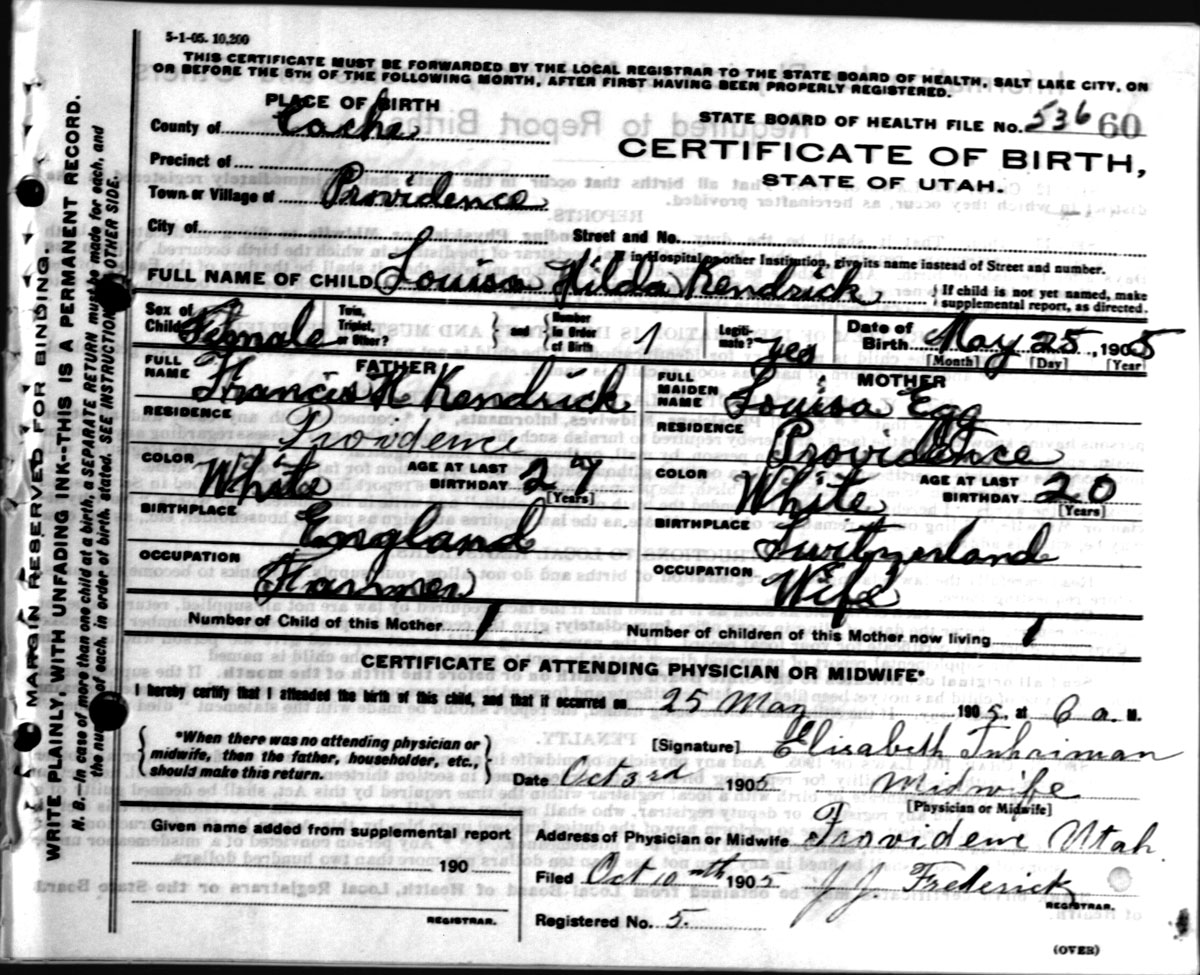 5-1-05. 10,200
THIS CERTIFICATE MUST BE FORWARDED BY THE LOCAL REGISTRAR TO THE STATE BOARD OF HEALTH, SALT LAKE CITY, ON
OR BEFORE THE 5TH OF THE FOLLOWING MONTH, AFTER FIRST HAVING BEEN PROPERLY REGISTERED.
PLACE OF BIRTH
County of Cache
Precinct of
Town or Village of Providence
City of
STATE BOARD OF HEALTH FILE No. 536 60
CERTIFICATE OF BIRTH,
STATE OF UTAH.
Street and No.
If in Hospital or other Institution, give its name instead of Street and number.
FULL NAME OF CHILD Louisa Hilda Kendrick
If child is not yet named, make
supplemental report, as directed.
Sex of Child Female
Twin, Triplet, or Other?
and
Number in Order of Birth 1
Legitimate? yes
Date of Birth May 25, 1905
[Month] [Day] [Year]
FATHER
FULL NAME Francis H Kendrick
RESIDENCE Providence
COLOR White
AGE AT LAST BIRTHDAY 27
[Years]
BIRTHPLACE England
OCCUPATION Farmer
MOTHER
FULL MAIDEN NAME Louisa Egg
RESIDENCE Providence
COLOR White
AGE AT LAST BIRTHDAY 20
[Years]
BIRTHPLACE Switzerland
OCCUPATION Wife
Number of Child of this Mother 1
Number of children of this Mother now living 1
CERTIFICATE OF ATTENDING PHYSICIAN OR MIDWIFE*
I hereby certify that I attended the birth of this child, and that it occurred on 25 May 1905, at 6 a. M.
*When there was no attending physician or
midwife, then the father, householder, etc.,
should make this return.
[Signature] Elisabeth Fuhriman
Date Oct 3rd 1905
Midwife
[Physician or Midwife]
Given name added from supplemental report
190
REGISTRAR.
Address of Physician or Midwife Providence Utah
Filed Oct 10th 1905 J.J. Frederick
REGISTRAR.
Registered No. 5.
(OVER)
MARGIN RESERVED FOR BINDING.
WRITE PLAINLY WITH UNFADING INK--THIS IS A PERMANENT RECORD.
N. B.--In case of more than one child at a birth, a SEPARATE RETURN must be made for each, and
the number of each, in order of birth, stated. SEE INSTRUCTIONS OTHER SIDE.